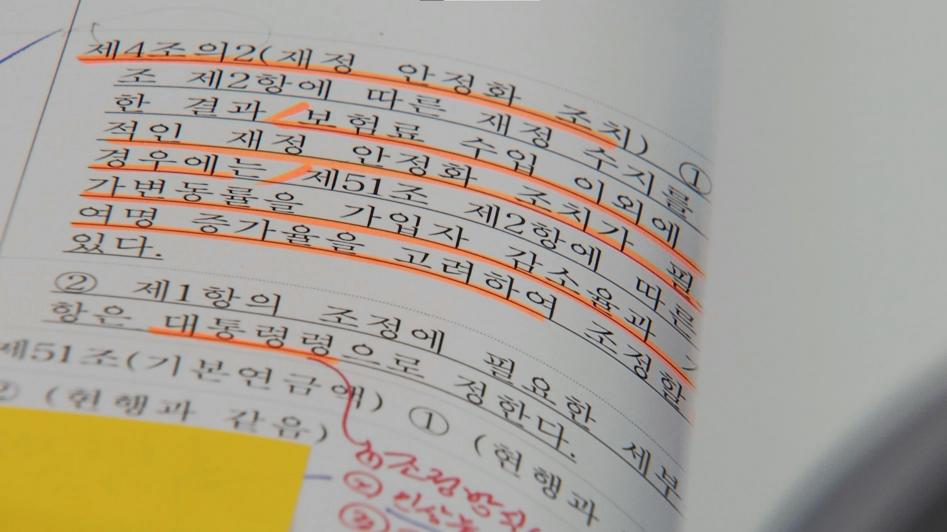 제4조의2(재정 안정화 조치) ①
조 제2항에 따른 재정 수지를
한 결과 보험료 수입 이외에
적인 재정 안정화 조치가 필
경우에는 제51조 제2항에 따른
가변동률을 가입자 감소율과
여명 증가율을 고려하여 조정할
있다.
② 제1항의 조정에 필요한 세부
항은 대통령령으로 정한다.
제51조(기본연금액) ① (현행과
② (현행과 같음)
① 조정방식
②
③